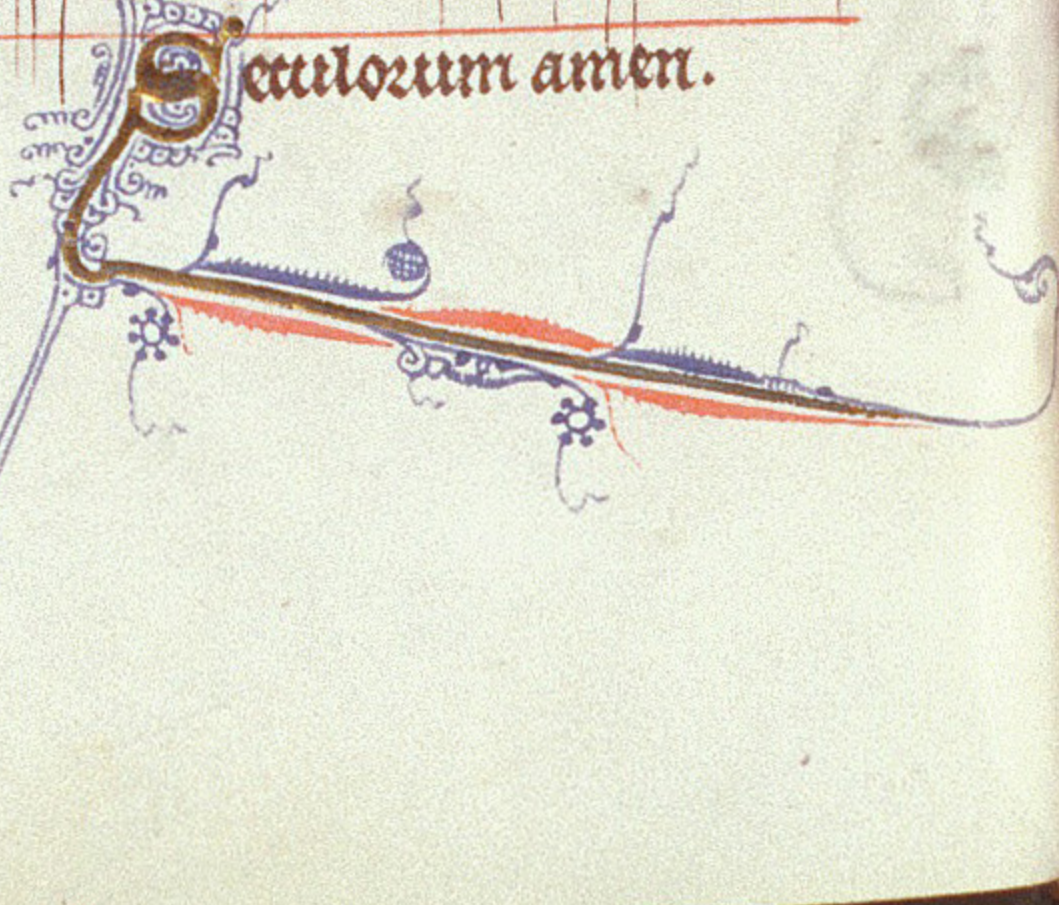 Seculorum amen.